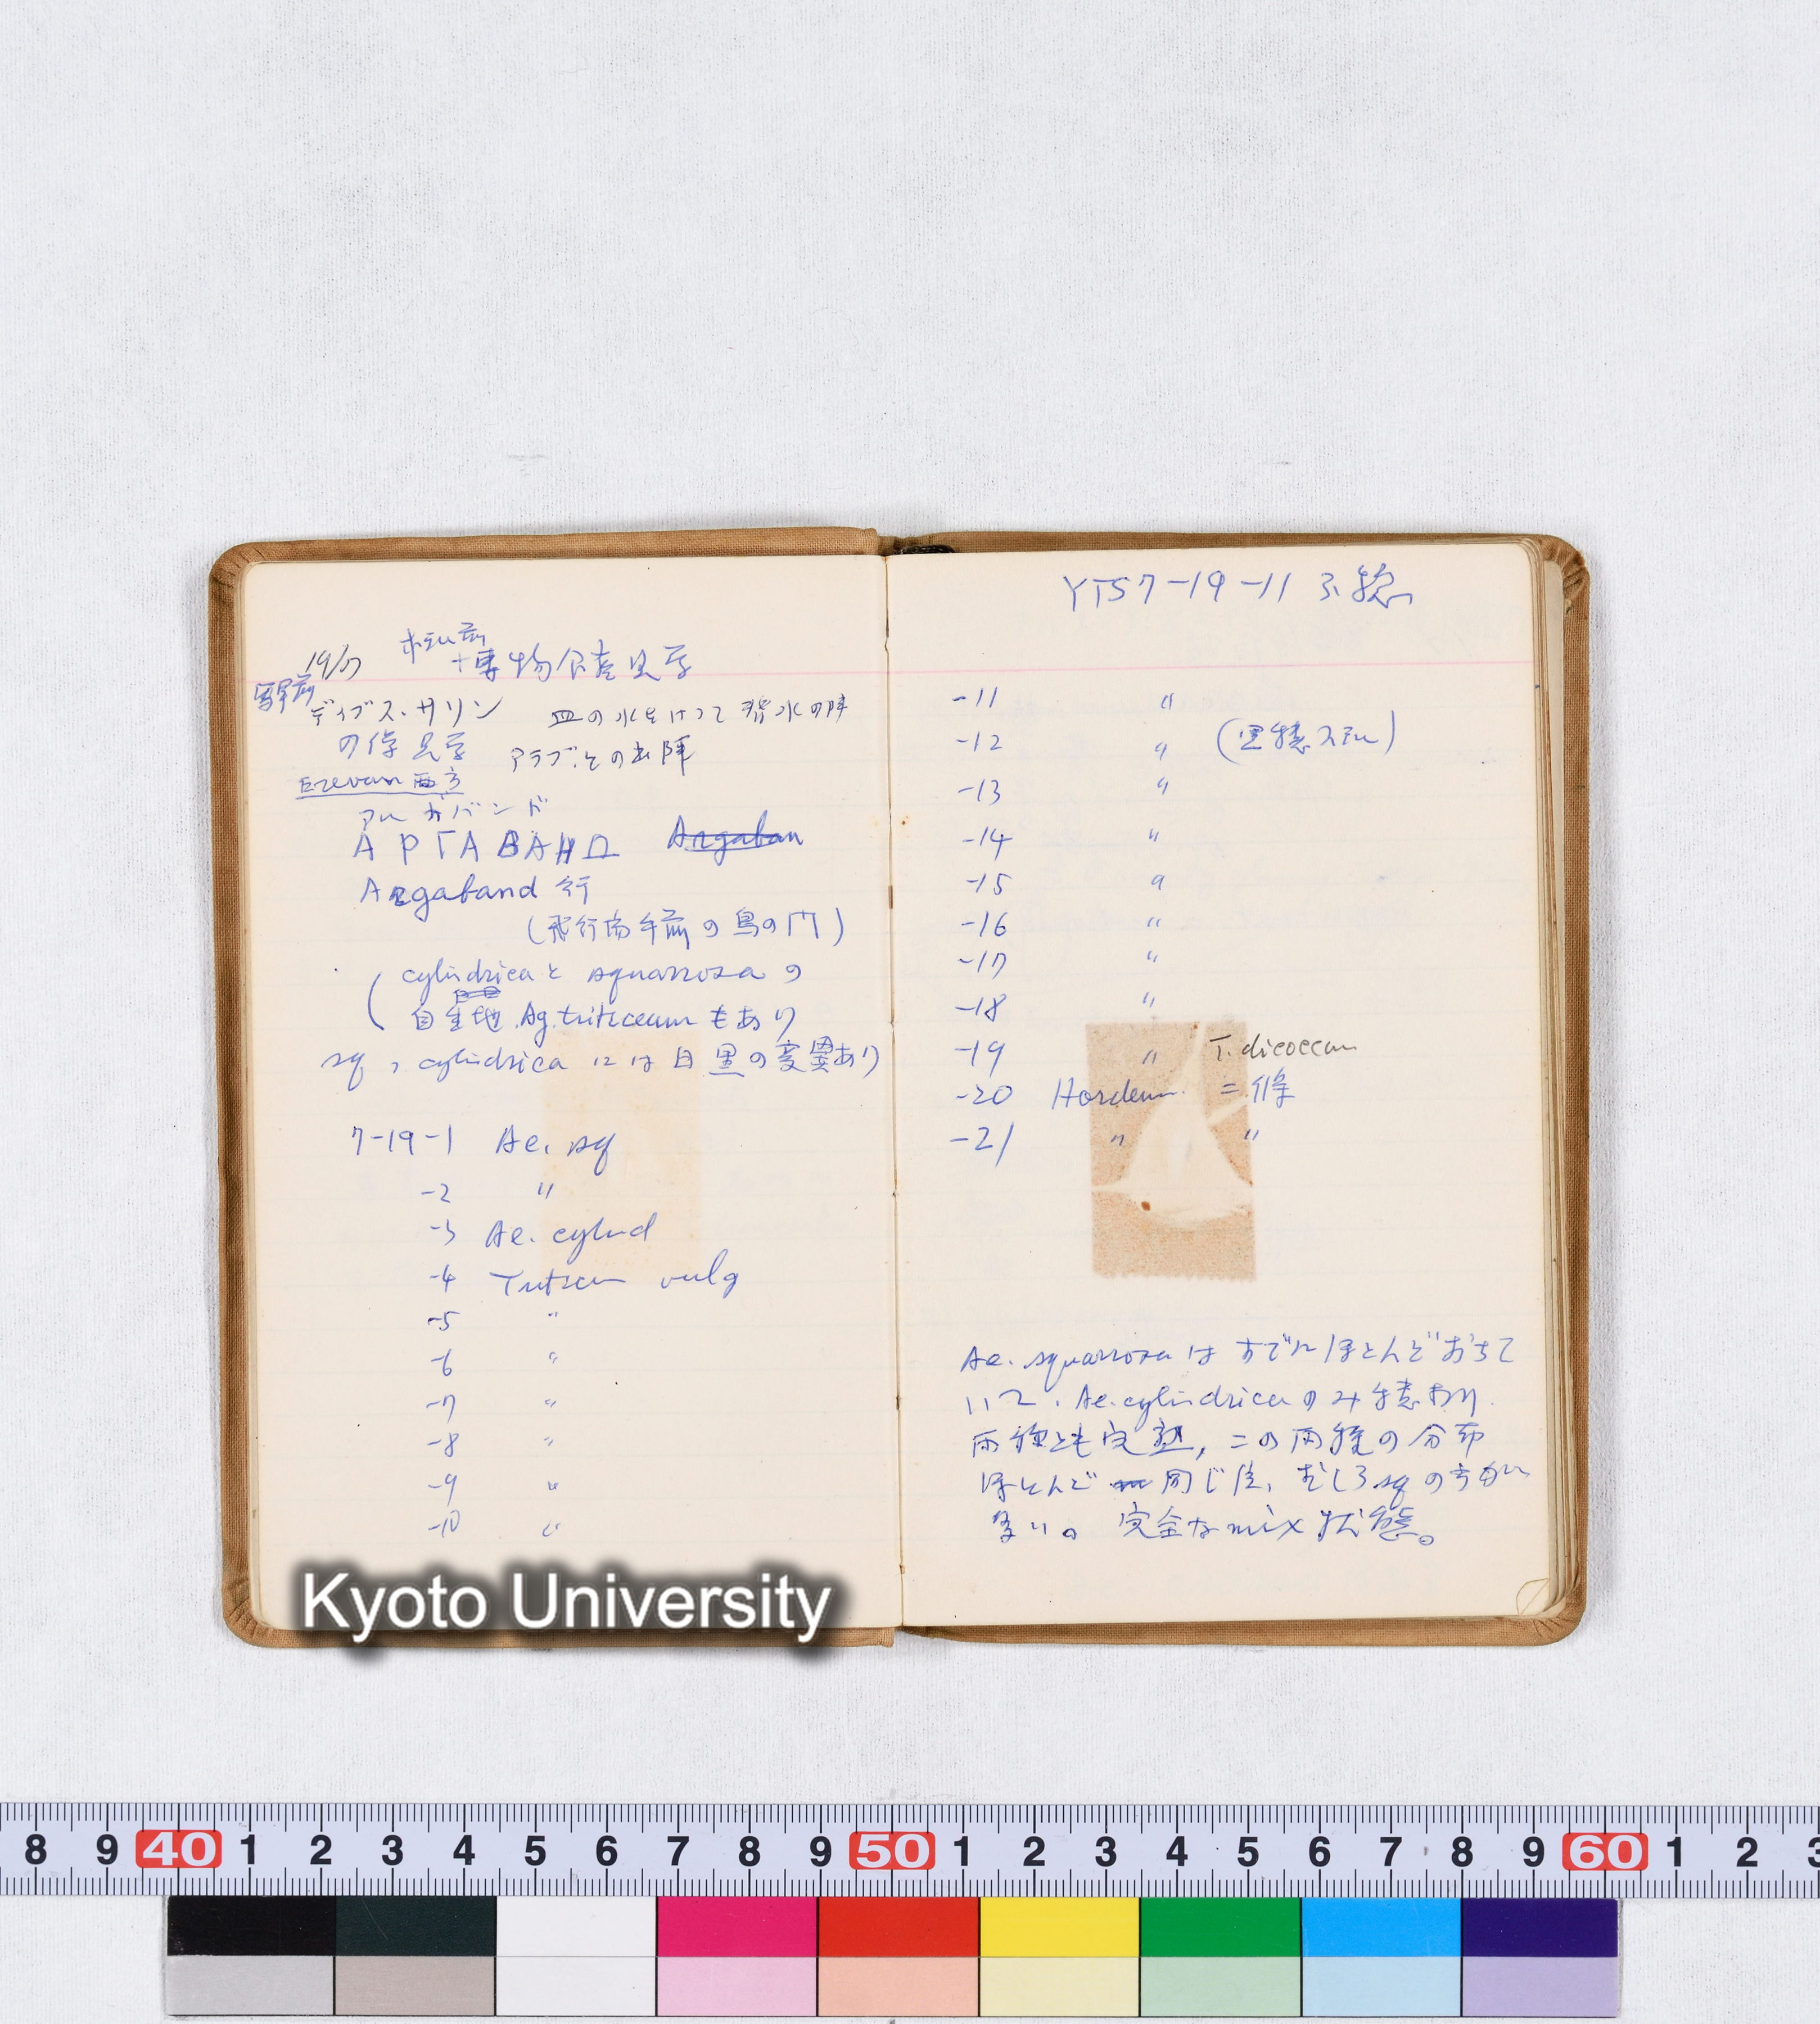 19/7 ホテル前
博物館産見学
駅前
ディブス・サリン 皿の水をけって 背水の陣
の像見学 アラブとの出陣
Erevan 西方
アルガバンド
АРГАВАНД Argaban
Argaband 行
(飛行場手前の鳥の門)
cylindrica と squarrosa の
自生地. Ag. triticeum もあり
sq, cylindrica には白黒の変異あり
7-19-1 Ae. sq
-2 〃
-3 Ae. cylind
-4 Triticum vulg
-5 〃
-6 〃
-7 〃
-8 〃
-9 〃
-10 〃
YT57-19-11
-11 〃
-12 〃 (黒穂
-13 〃
-14 〃
-15 〃
-16 〃
-17 〃
-18 〃
-19 〃 T. dicoccum
-20 Hordeum 二條
-21 〃 〃
Ae. squarrosa はすでにほとんどおちて
いて. Ae. cylindrica のみ穂あり.
両種とも完熟, この両種の分布
ほとんど同じ位、むしろ sq の方が
多い。完全な mix 状態。
Kyoto University
8 9 40 1 2 3 4 5 6 7 8 9 50 1 2 3 4 5 6 7 8 9 60 1 2 3